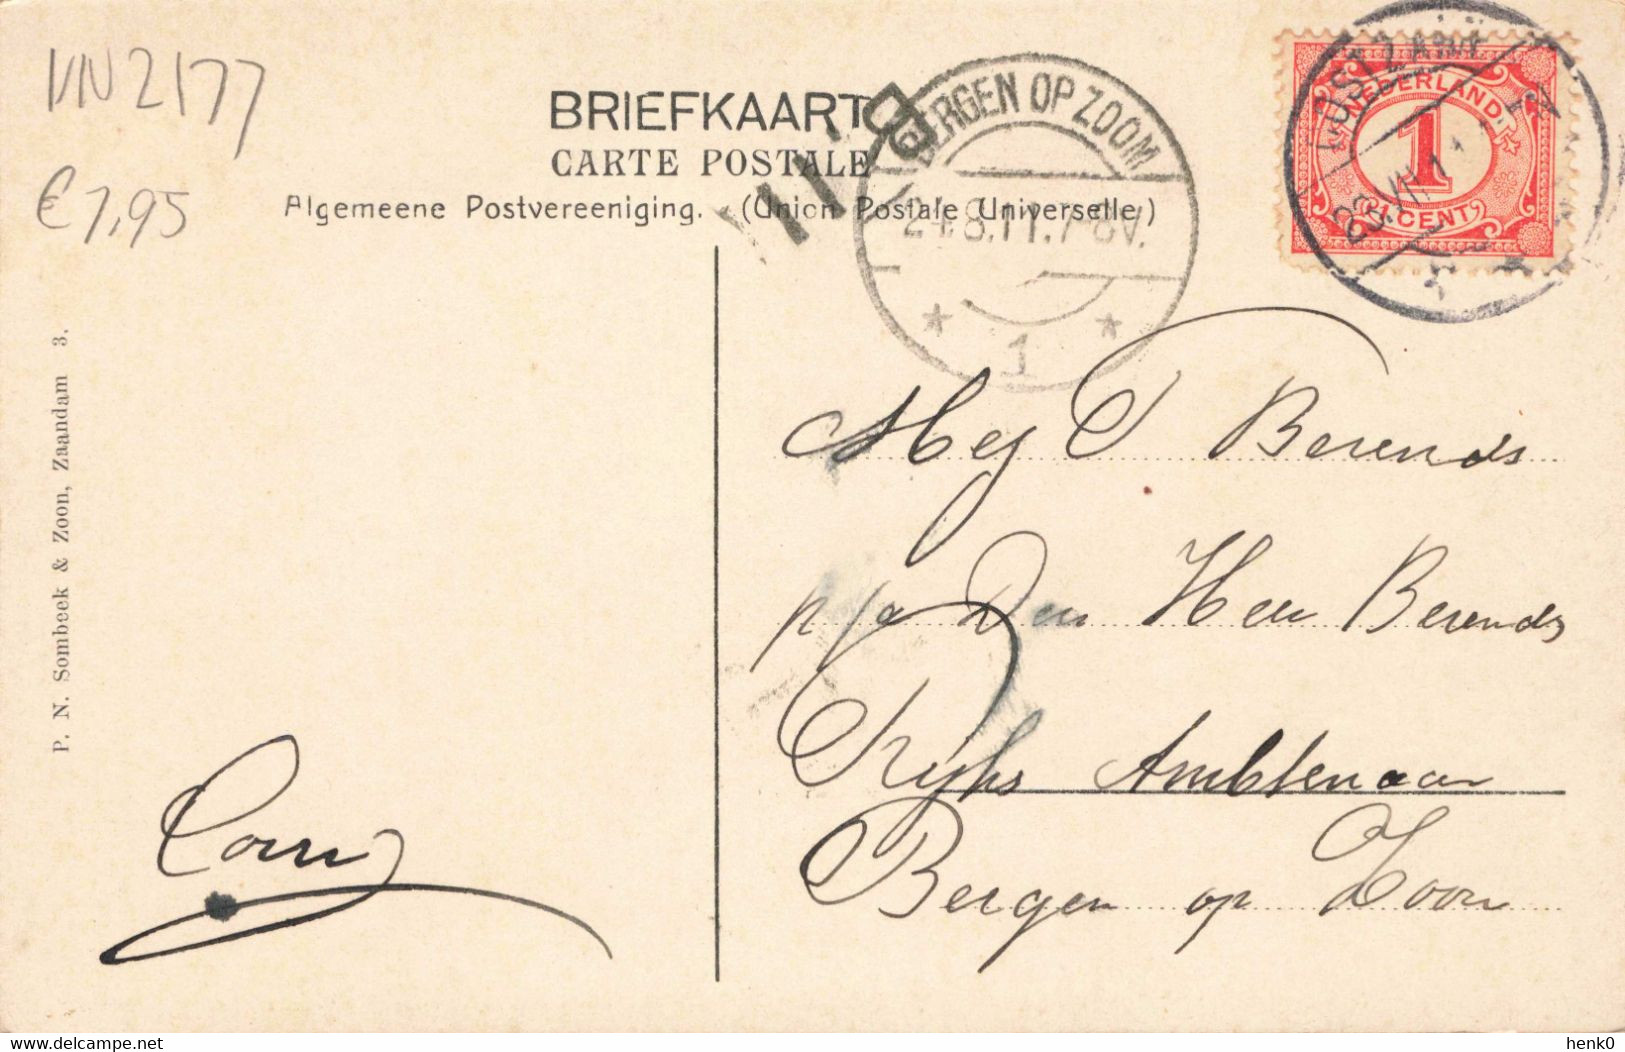 VN2177
€7,95
BRIEFKAART
CARTE POSTALE
Algemeene Postvereeniging. (Union Postale Universelle)
BERGEN OP ZOOM
24.8.11.7-8V.
* 1 *
NEDERLAND
1
CENT
P. N. Sombeek & Zoon, Zaandam 3.
Mej T Berends
p/a Den Heer Berends
Ryks Ambtenaar
Bergen op Zoon
delcampe.net
henk0